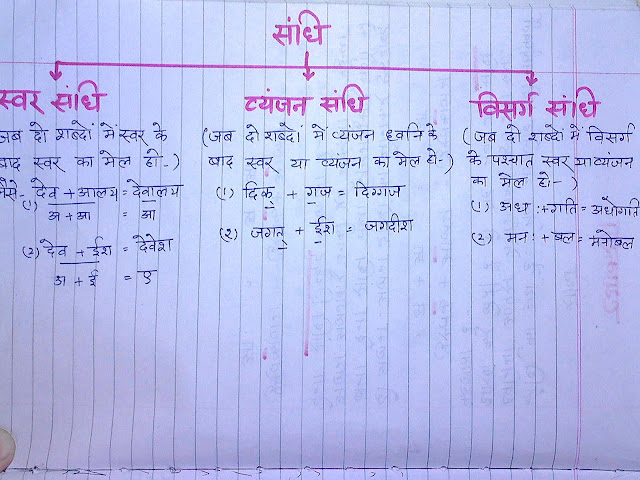 संधि
स्वर संधि
जब दो शब्दों में स्वर के
बाद स्वर का मेल हो-)
जैसे- देव + आलय = देवालय
(1)
अ + आ = आ
(2) देव + ईश = देवेश
अ + ई = ए
व्यंजन संधि
(जब दो शब्दों में व्यंजन ध्वनि के
बाद स्वर या व्यंजन का मेल हो-)
(1) दिक् + गज = दिग्गज
(2) जगत् + ईश = जगदीश
विसर्ग संधि
(जब दो शब्दों में विसर्ग
के पश्चात स्वर या व्यंजन
का मेल हो-)
(1) अध: + गति = अधोगति
(2) मन: + बल = मनोबल